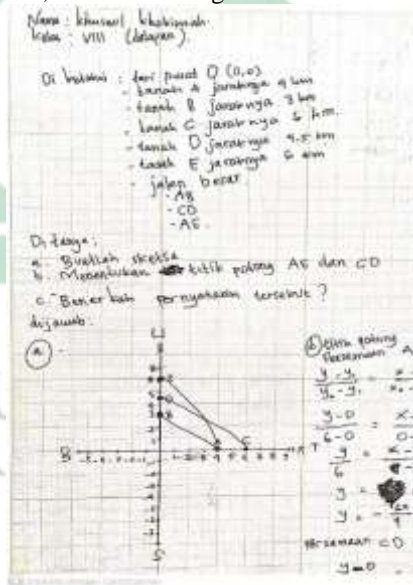 Nama : khusnul khotimah.
kelas : VIII (delapan)
Di ketahui : dari pusat O (0,0)
- tanah A jaraknya 4 km
- tanah B jaraknya 3 km
- tanah C jaraknya 6 km.
- tanah D jaraknya 4.5 km
- tanah E jaraknya 6 km
- jalan besar
- AB
- CD
- AE.
Ditanya :
a. Buatlah sketsa
b. Menentukan titik potong AE dan CD
c. Benar kah pernyataan tersebut ?
dijawab.
(a) -
U
E
D
B
B
A
C
T
S
(b) titik potong
Persamaan A
y - y₁
=
y - 0
6 - 0
=
y
6
=
y =
y = -
Persamaan CD
y - 0